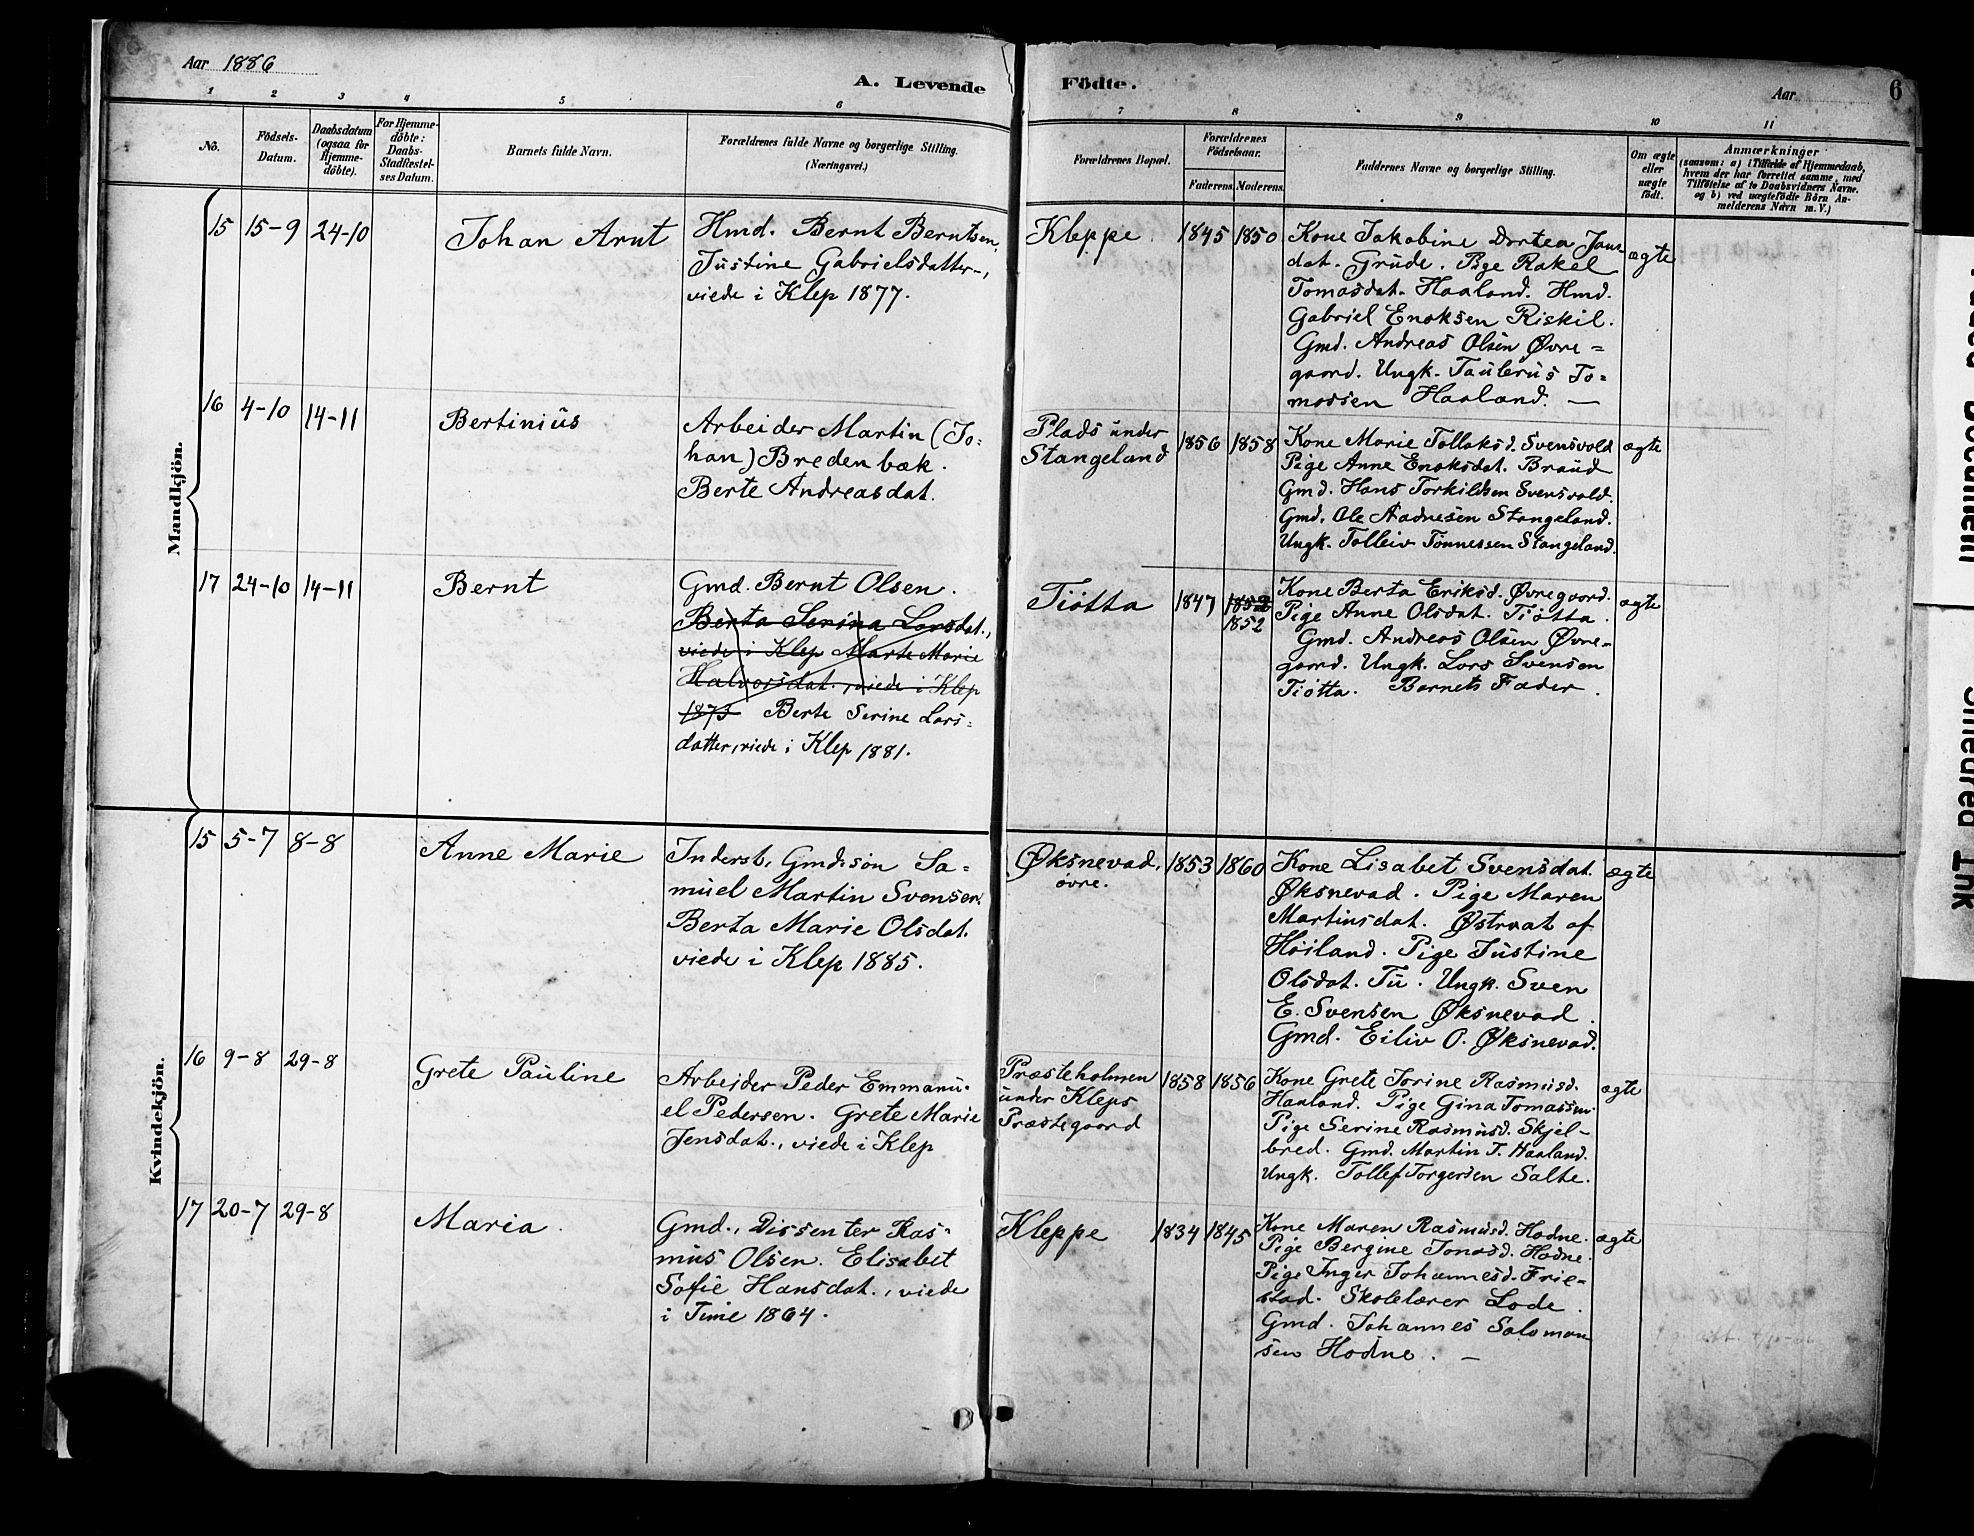 Aar 1886
A. Levende Födte.
Aar
6
1 2 3 4 5 6 7 8 9 10 11
No.
Födsels-
Datum.
Daabsdatum
(ogsaa for
Hjemme-
döbte).
For Hjemme-
döbte:
Daabs-
Stadfæstel-
ses Datum.
Barnets fulde Navn.
Forældrenes fulde Navne og borgerlige Stilling.
(Næringsvei.)
Forældrenes Bopæl.
Forældrenes
Födselsaar.
Faderens. Moderens.
Faddernes Navne og borgerlige Stilling.
Om ægte
eller
uægte
födt.
Anmærkninger
(saasom: a) i Tilfælde af Hjemmedaab,
hvem der har forrettet samme, med
Tilföielse af to Daabsvidners Navne,
og b) ved uægtefödte Börn An-
melderens Navn m. V.)
Mandkjön.
15 15-9 24-10
Johan Arnt
Hmd. Bernt Berntsen,
Justine Gabrielsdatter-,
viede i Klep 1877.
Kleppe 1845 1850
Kone Jakobine Dortea Jans
dat. Grude. Pige Rakel
Tomasdat. Haaland. Hmd.
Gabriel Enoksen Riskil.
Gmd. Andreas Olsen Øvre=
gaard. Ungk. Taulerus To=
massen Haaland. —
ægte
16 4-10 14-11
Bertinius
Arbeider Martin (Jo=
han) Bredenbæk.
Berte Andreasdat.
Plads under
Stangeland
1856 1858
Kone Marie Tollaksd. Svensvold
Pige Anne Enoksdat. Braud
Gmd. Hans Torkildsen Svensvold.
Gmd. Ole Aadnesen Stangeland.
Ungk. Tolleiv Tønnessen Stangeland.
ægte
17 24-10 14-11
Bernt
Gmd. Bernt Olsen.
Berta Serina Larsdat.,
viede i Klep Marte Marie
Halvorsdat., viede i Klep
1873 Berte Serine Lars=
datter, viede i Klep 1881.
Tiøtta 1847
1852
Kone Berta Eriksd. Øvregaard.
Pige Anne Olsdat. Tiøtta.
Gmd. Andreas Olsen Øvre=
gaard. Ungk. Lars Svensen
Tiøtta. Barnets Fader.
ægte
Kvindekjön.
15 5-7 8-8
Anne Marie
Inderst, Gmdsøn Sa=
muel Martin Svensen.
Berta Marie Olsdat.
viede i Klep 1885.
Øksnevad,
øvre.
1853 1860
Kone Lisabet Svensdat.
Øksnevad. Pige Maren
Martinsdat. Østraat af
Høiland. Pige Justine
Olsdat. Tu. Ungk. Sven
E. Svensen Øksnevad.
Gmd. Eiliv O. Øksnevad.
ægte
16 9-8 29-8
Grete Pauline
Arbeider Peder Emmanu-
el Pedersen. Grete Marie
Jensdat., viede i Klep
Præsteholmen
under Kleps
Præstegaard
1858 1856
Kone Grete Jorine Rasmusd.
Haaland. Pige Gina Tomassen.
Pige Serine Rasmusd. Skjel-
bred. Gmd. Martin T. Haaland.
Ungk. Tollef Torgersen Salte.
ægte
17 20-7 29-8
Maria.
Gmd., Dissenter Ras=
mus Olsen. Elisabet
Sofie Hansdat., viede
i Time 1864.
Kleppe 1834 1845
Kone Maren Rasmusd. Hodne.
Pige Bergine Jonasd. Hodne.
Pige Inger Johannesd. Frie-
stad. Skolelærer Lode.
Gmd. Johannes Salomon
sen Hodne. —
ægte
Smeared Ink